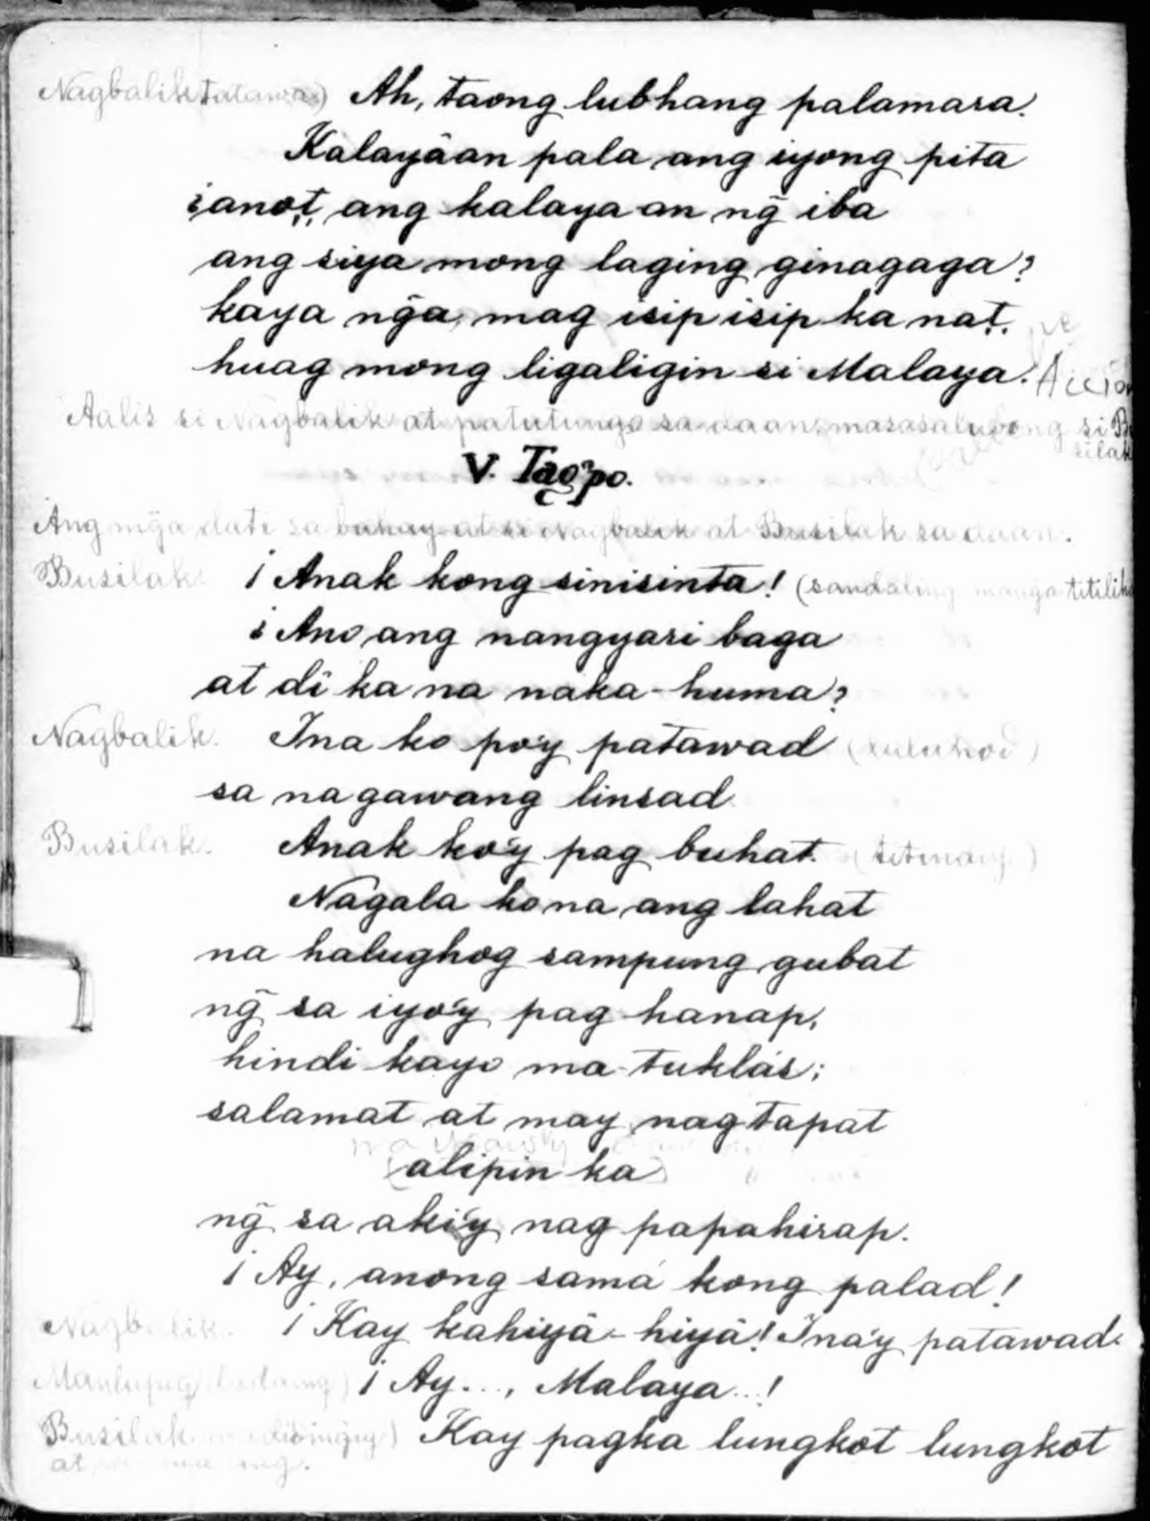 Nagbalik tatawa) Ah, taong lubhang palamara.
Kalayâan pala ang iyong pita
¿anot, ang kalayaan ng̃ iba
ang siya mong laging ginagaga?
kaya ng̃a, mag isip isip ka nat,
huag mong ligaligin si Malaya.
Aalis si Nagbalik at patutungo sa daan, masasalubong si Bu
silak
V. Tagpo.
Ang mg̃a dati sa bahay at si Nagbalik at Busilak sa daan.
Busilak ¡Anak kong sinisinta! (sandaling
¿Ano ang nangyari baga
at di ka na naka-huma?
Nagbalik. Ina ko po'y patawad (luluhod)
sa nagawang linsad
Busilak. Anak ko'y pag buhat. (titindig)
Nagala ko na ang lahat
na halughog sampung gubat
ng̃ sa iyo'y pag-hanap,
hindi kayo ma-tuklás;
salamat at may nagtapat
(alipin ka)
ng̃ sa aki'y nag papahirap.
¡Ay, anong samá kong palad!
Nagbalik. ¡Kay kahiyâ-hiyâ! Ina'y patawad.
¡Ay..., Malaya...!
Busilak Kay pagka lungkot lungkot
at